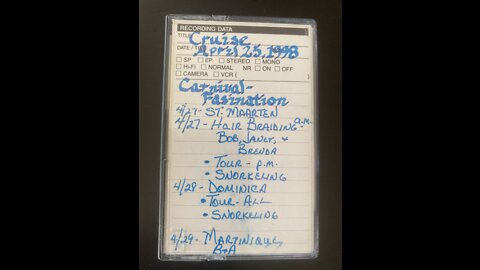 RECORDING DATA
TITLE Cruise
DATE / TIME April 25, 1998
SP EP STEREO MONO
Hi-Fi NORMAL NR ON OFF
CAMERA VCR (
Carnival-
Fasination
4/27- ST. MAARTEN
4/27- HAIR BRAIDING- a.m.
BOB, JANET, +
BRENDA
• TOUR - p.m.
• SNORKELING
4/28- DOMINICA
• TOUR- ALL
• SNORKELING
4/29- MARTINIQUE,
B+A